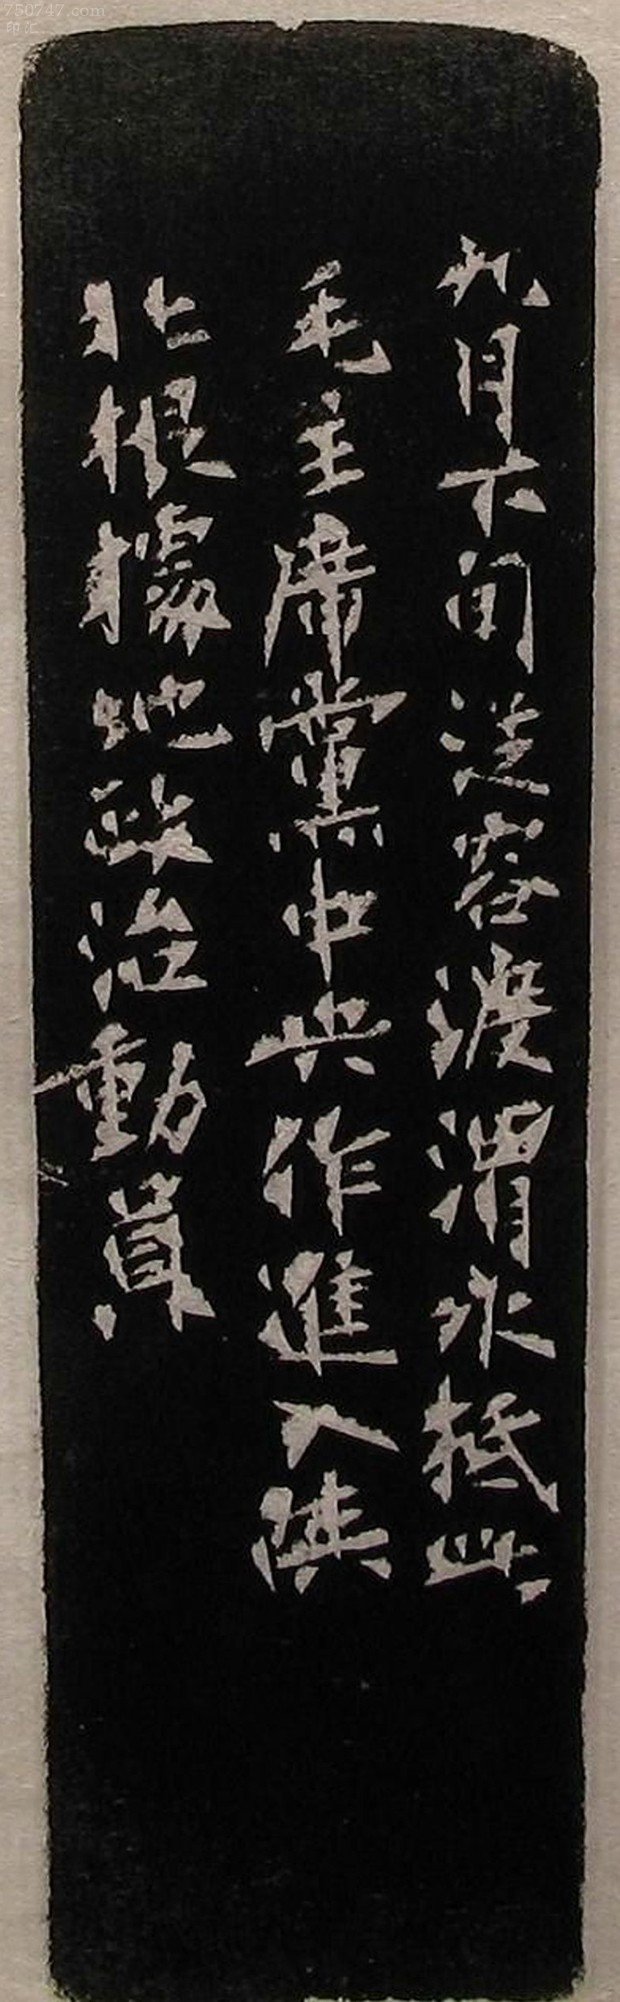 九月下旬从容渡渭水抵此
毛主席黨中央作進入陝
北根據地政治動員
750747.com
印汇